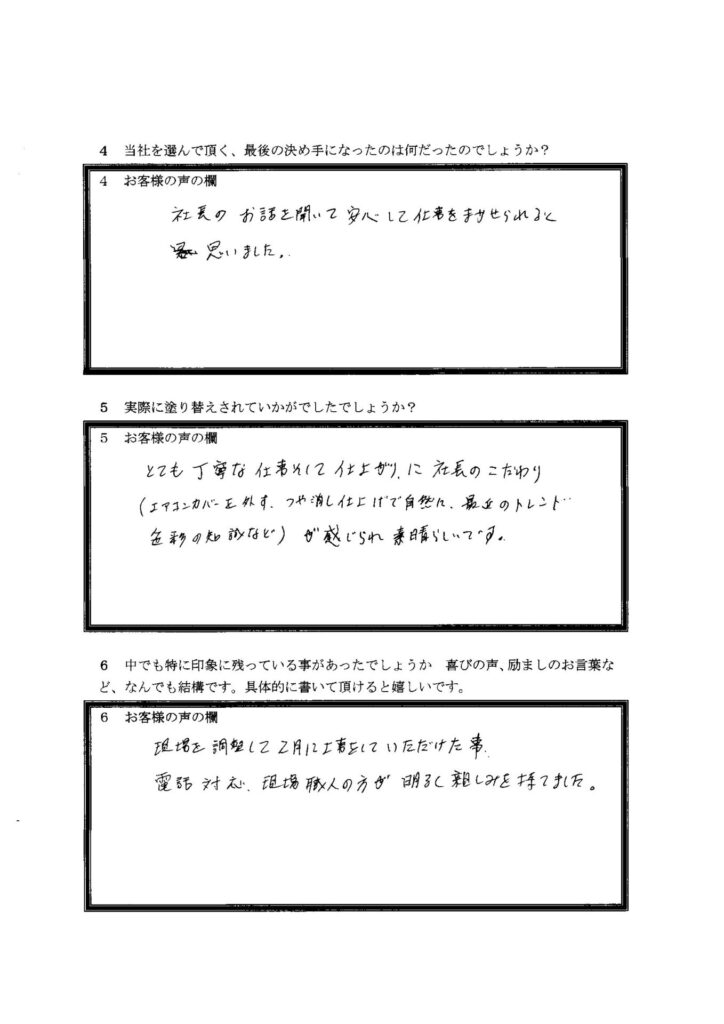 4 当社を選んで頂く、最後の決め手になったのは何だったのでしょうか？
4 お客様の声の欄
社長の お話を聞いて 安心して仕事をまかせられると
思いました。
5 実際に塗り替えされていかがでしたでしょうか？
5 お客様の声の欄
とても 丁寧な 仕事そして 仕上がり、に 社長のこだわり
（エアコンカバーを外す、つや消し仕上げで自然に、最近のトレンド
色彩の知識など）が感じられ 素晴らしいです。
6 中でも特に印象に残っている事があったでしょうか 喜びの声、励ましのお言葉な
ど、なんでも結構です。具体的に書いて頂けると嬉しいです。
6 お客様の声の欄
現場を 調整して 2月に工事をしていただけた事、
電話 対応、現場 職人の方が 明るく 親しみを持てました。